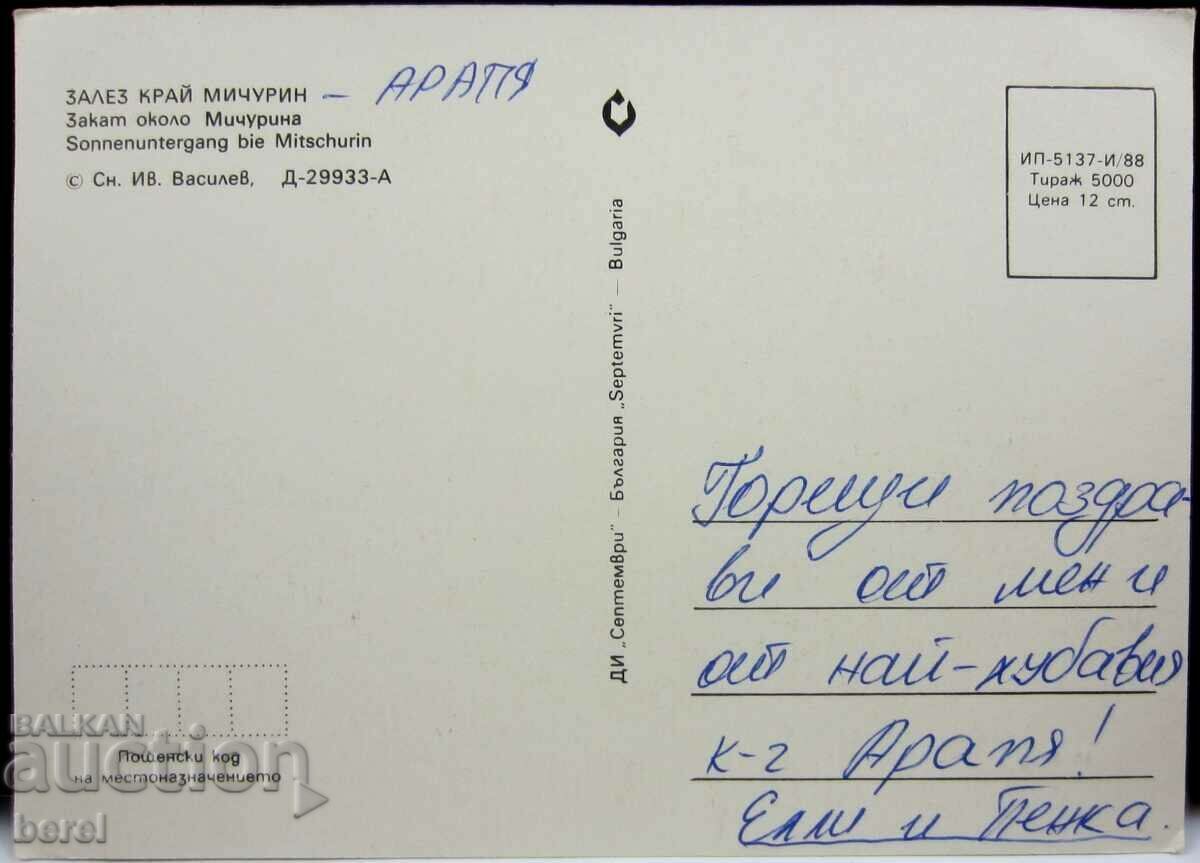 ЗАЛЕЗ КРАЙ МИЧУРИН – АРАПЯ
Закат около Мичурина
Sonnenuntergang bie Mitschurin
© Сн. Ив. Василев, Д-29933-А
ДИ „Септември" – България „Septemvri" – Bulgaria
ИП-5137-И/88
Тираж 5000
Цена 12 ст.
Горещи поздра-
ви от мен и
от най-хубавия
к-г Арапя!
Ели и Пенка.
Пощенски код
на местоназначението
BALKAN
auction
berel